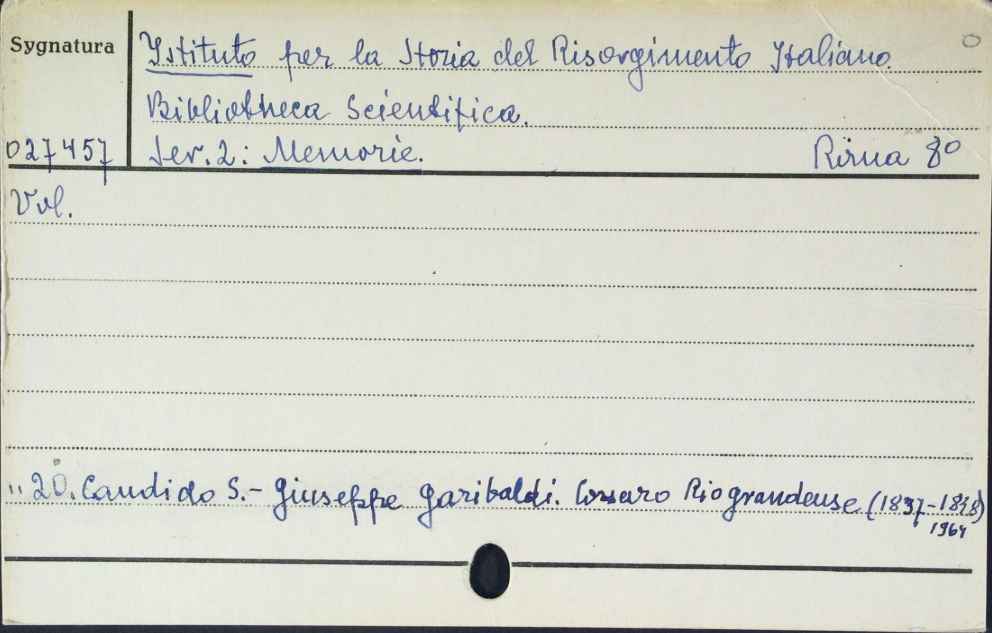 Sygnatura
Istituto per la Storia del Risorgimento Italiano
Bibliotheca Scientifica.
027457 Ser. 2: Memorie. Roma 8°
Vol.
„ 20. Candido S. - Giuseppe Garibaldi. Corsaro Riograndense (1837-1848)
1964